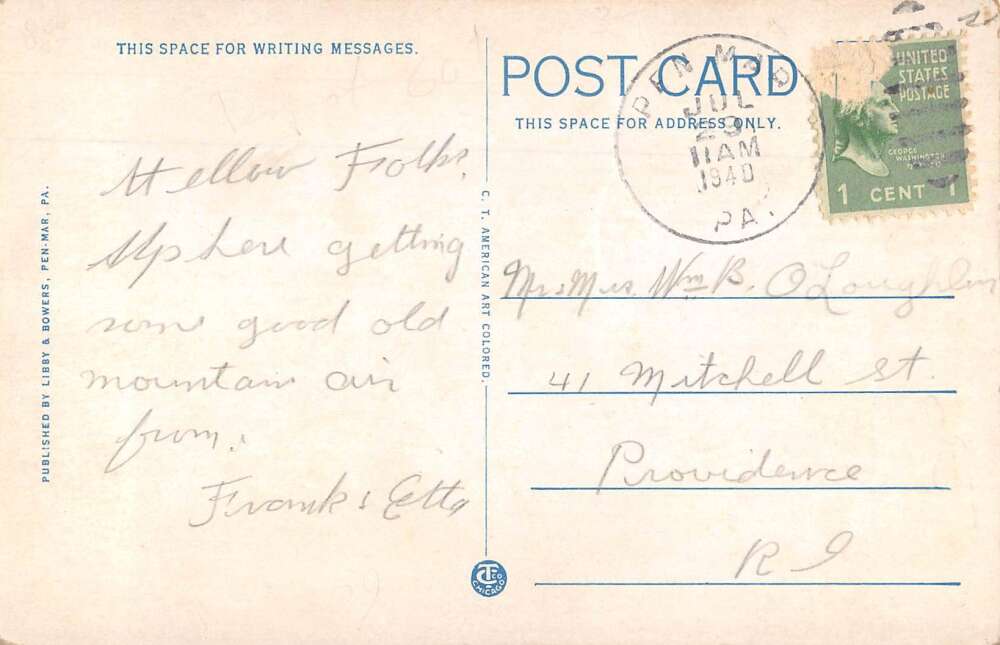 THIS SPACE FOR WRITING MESSAGES.
POST CARD
THIS SPACE FOR ADDRESS ONLY.
PEN MAR
JUL
29
11 AM
1940
PA.
UNITED
STATES
POSTAGE
GEORGE
WASHINGTON
1 CENT 1
Hellow Folks,
Up here getting
some good old
mountain air
from.
Frank & Etta
Mr & Mrs. Wm B. O'Loughlin
41 Mitchell St.
Providence
R I
PUBLISHED BY LIBBY & BOWERS, PEN-MAR, PA.
C. T. AMERICAN ART COLORED.
CT CO
CHICAGO